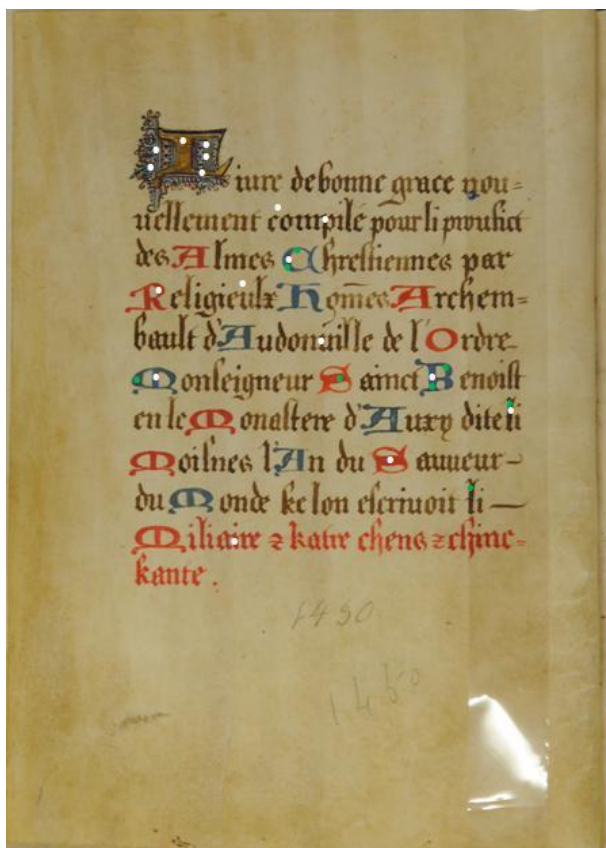 Liure de bonne grace nou=
uellement compile pour li proufict
des Almes Chrestiennes par
Religieulx Hom̃es Archem=
bault d'Audonuille de l'Ordre
Monseigneur Sainct Benoist
en le Monastere d'Auxy dite li
Moisnes l'An du Sauueur-
du Monde ke lon escriuoit li —
Miliaire z katre chens z chinc=
kante.
1450
1450